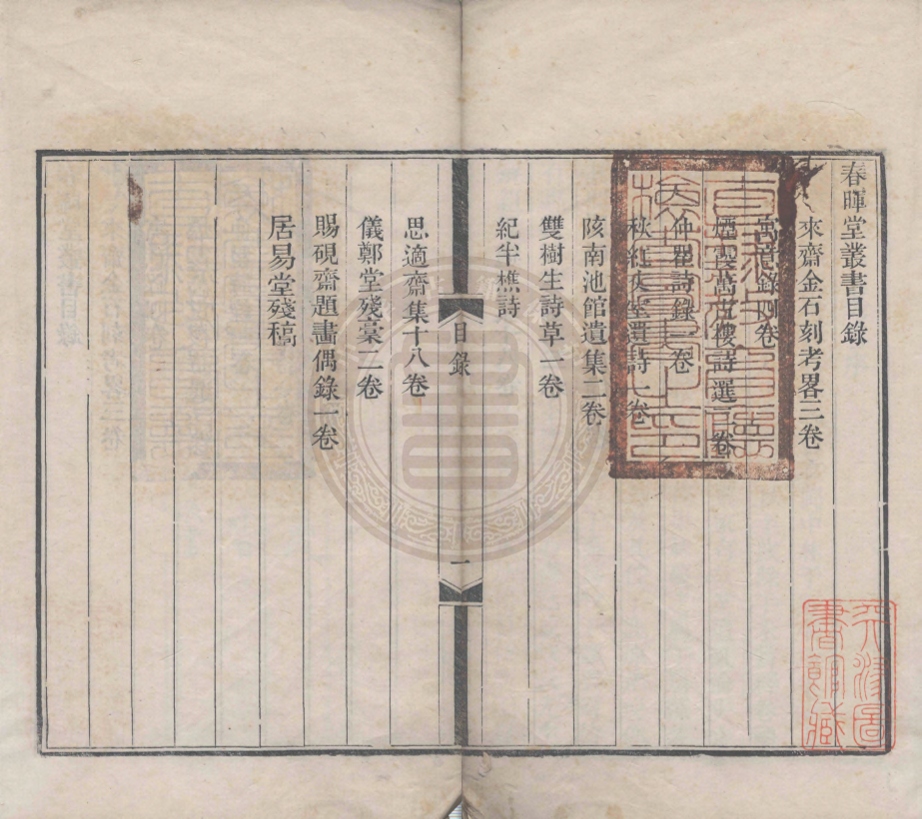 春暉堂叢書目錄
來齋金石刻考畧三卷
寓意錄四卷
煙霞萬古樓詩選二卷
仲瞿詩錄一卷
秋紅丈室遺詩一卷
陔南池館遺集二卷
雙樹生詩草一卷
紀半樵詩
目錄
一
思適齋集十八卷
儀鄭堂殘稾二卷
賜硯齋題畫偶錄一卷
居易堂殘稿